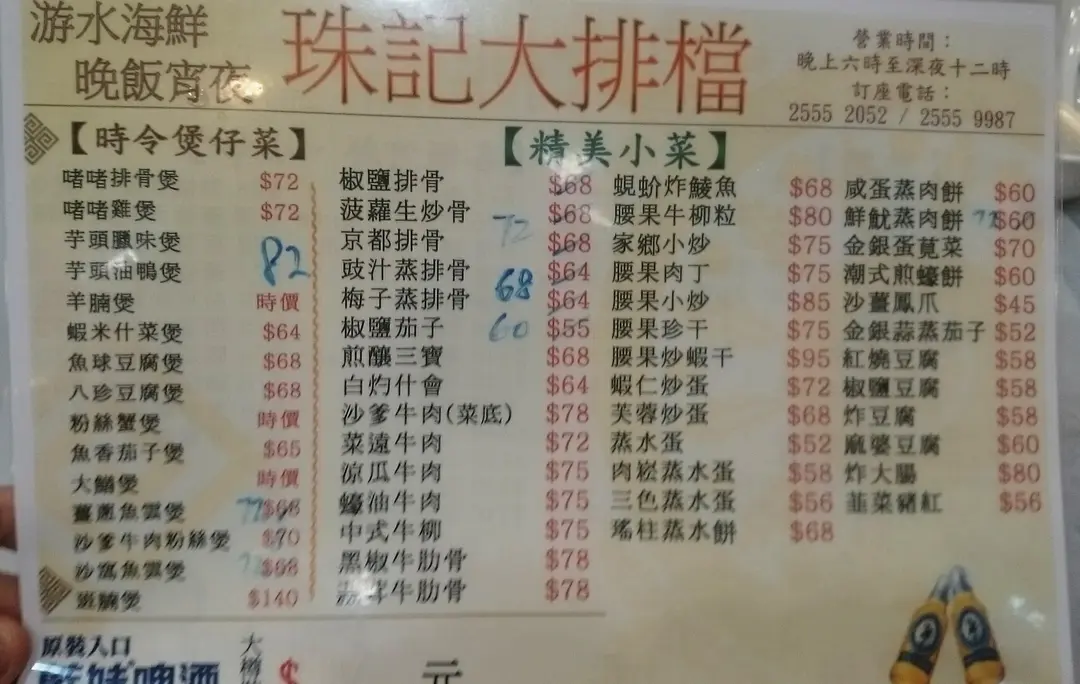 游水海鮮
晚飯宵夜
珠記大排檔
營業時間：
晚上六時至深夜十二時
訂座電話：
2555 2052 / 2555 9987
【時令煲仔菜】
啫啫排骨煲 $72
啫啫雞煲 $72
芋頭臘味煲
芋頭油鴨煲 82
羊腩煲 時價
蝦米什菜煲 $64
魚球豆腐煲 $68
八珍豆腐煲 $68
粉絲蟹煲 時價
魚香茄子煲 $65
大鱔煲 時價
薑蔥魚雲煲 72 $68
沙爹牛肉粉絲煲 $70
沙窩魚雲煲 $68
斑腩煲 $140
【精美小菜】
椒鹽排骨 $68
菠蘿生炒骨 $68
京都排骨 72 $68
豉汁蒸排骨 $64
梅子蒸排骨 68 $64
椒鹽茄子 60 $55
煎釀三寶 $68
白灼什會 $64
沙爹牛肉(菜底) $78
菜遠牛肉 $72
涼瓜牛肉 $75
蠔油牛肉 $75
中式牛柳 $75
黑椒牛肋骨 $78
牛肋骨 $78
蜆蚧炸鯪魚 $68
腰果牛柳粒 $80
家鄉小炒 $75
腰果肉丁 $75
腰果小炒 $85
腰果珍干 $75
腰果炒蝦干 $95
蝦仁炒蛋 $72
芙蓉炒蛋 $68
蒸水蛋 $52
肉崧蒸水蛋 $58
三色蒸水蛋 $56
瑤柱蒸水餅 $68
咸蛋蒸肉餅 $60
鮮魷蒸肉餅 72 $60
金銀蛋莧菜 $70
潮式煎蠔餅 $60
沙薑鳳爪 $45
金銀蒜蒸茄子 $52
紅燒豆腐 $58
椒鹽豆腐 $58
炸豆腐 $58
麻婆豆腐 $60
炸大腸 $80
韮菜豬紅 $56
原裝入口
$
元